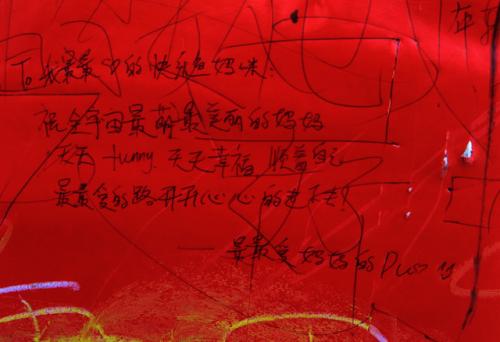 To 我最最的快乐妈咪:
祝全宇宙最萌最美丽的妈妈
天天 funny 天天幸福 顺着自己
最最爱的路开开心心的走下去!
—最最爱妈妈的